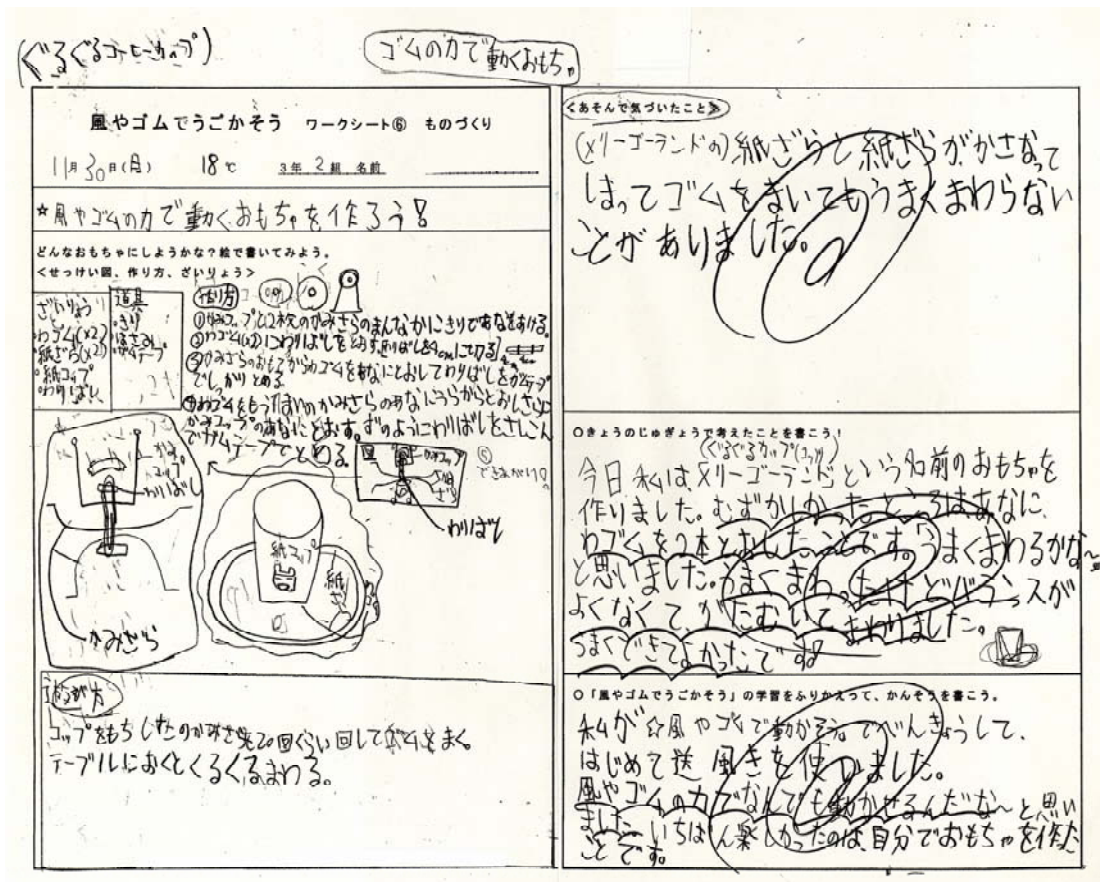 (ぐるぐるコーヒーカップ)
ゴムの力で動くおもちゃ
風やゴムでうごかそう ワークシート⑥ ものづくり
11月30日(月) 18℃ 3年 2組 名前
☆風やゴムの力で動くおもちゃを作ろう!
どんなおもちゃにしようかな?絵で書いてみよう。
<せっけい図、作り方、ざいりょう>
ざいりょう
わゴム(×2)
紙ざら(×2)
・紙コップ
わりばし
道具
・きり
はさみ
ガムテープ
作り方
①かみコップと2枚のかみさらのまんなかにきりであなをあける。
②わゴム(×2)にわりばしをとおす。
③かみさらのおもてからわゴムをあなにとおしてわりばしをガムテープ
でしっかりとめる
④わゴムをもう1まいのかみさらのあなにうらからとおしさらに
かみコップのあなにとおす。ずのようにわりばしをさしこん
でガムテープでとめる。
⑤
できあがり。
かみコップ
わりばし
かみざら
紙コップ
紙ざら
かみコップ
わりばし
遊び方
コップをもちしたのかみざらを20回くらい回してゴムをまく。
テーブルにおくとくるくるまわる。
<あそんで気づいたこと>
(メリーゴーランドの)紙ざらと紙ざらがかさなって
しまってゴムをまいてもうまくまわらない
ことがありました。
○きょうのじゅぎょうで考えたことを書こう!
今日私は、メリーゴーランドという名前のおもちゃを
作りました。むずかしかったところはあなに、
わゴムを2本とおしたことです。うまくまわるかな〜
と思いました。うまくまわったけどバランスが
よくなくてかたむいてまわりました。
うまくできてよかったです!
○「風やゴムでうごかそう」の学習をふりかえって、かんそうを書こう。
私が☆風やゴムで動かそう。でべんきょうして、
はじめて送風きを使いました。
風やゴムの力でなんでも動かせるんだな〜と思い
ました。いちばん楽しかったのは、自分でおもちゃを作った
ことです。